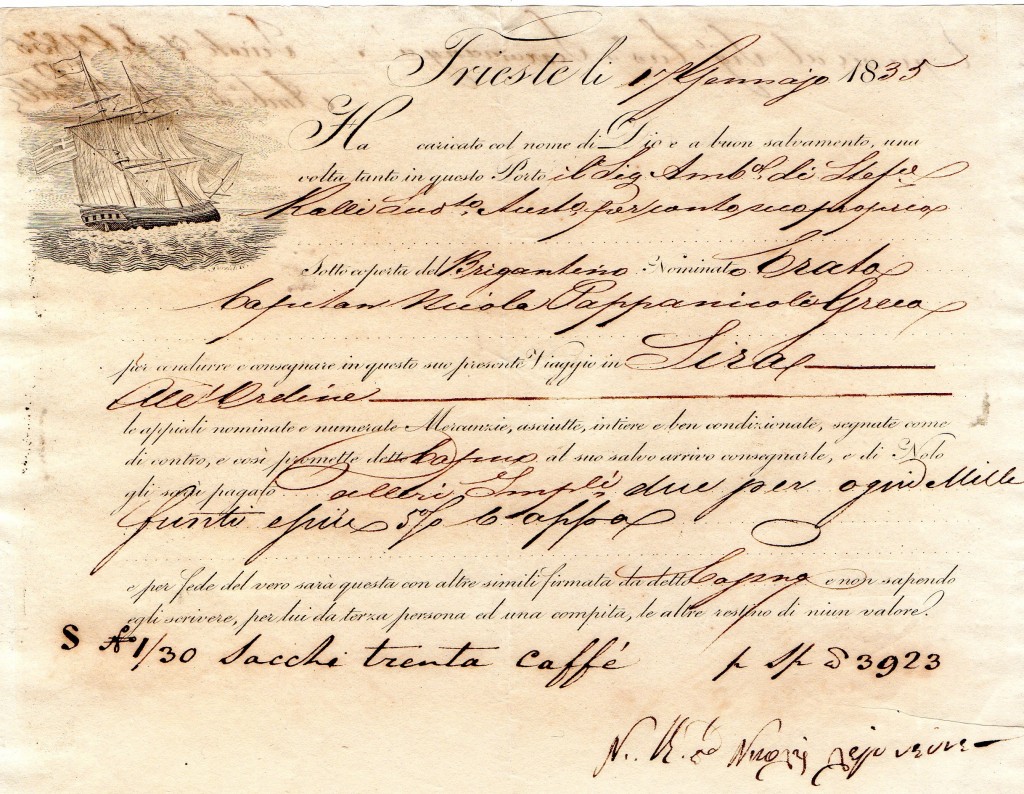 Trieste li 17 Gennajo 1835
Ha caricato col nome di Dio e a buon salvamento, una
volta tanto in questo Porto il Sig Amb.º di Stef.º
Ralli per conto proprio
Sotto coperta del Brigantino Nominato Erato
Capitan Nicola Pappanicola Greco
per condurre e consegnare in questo suo presente Viaggio in Sira
All' Ordine
le appiedi nominate e numerate Mercanzie, asciutte, intiere e ben condizionate, segnate come
di contro, e così promette detto Cap.no al suo salvo arrivo consegnarle, e di Nolo
gli sarà pagato talleri Imp.li due per ogni Mille
funti e più 5% Cappa
e per fede del vero sarà questa con altre simili firmata da detto Cap.no e non sapendo
egli scrivere, per lui da terza persona ed una compita, le altre restino di niun valore.
S Nº 1/30 Sacchi trenta caffé p Sp 3923